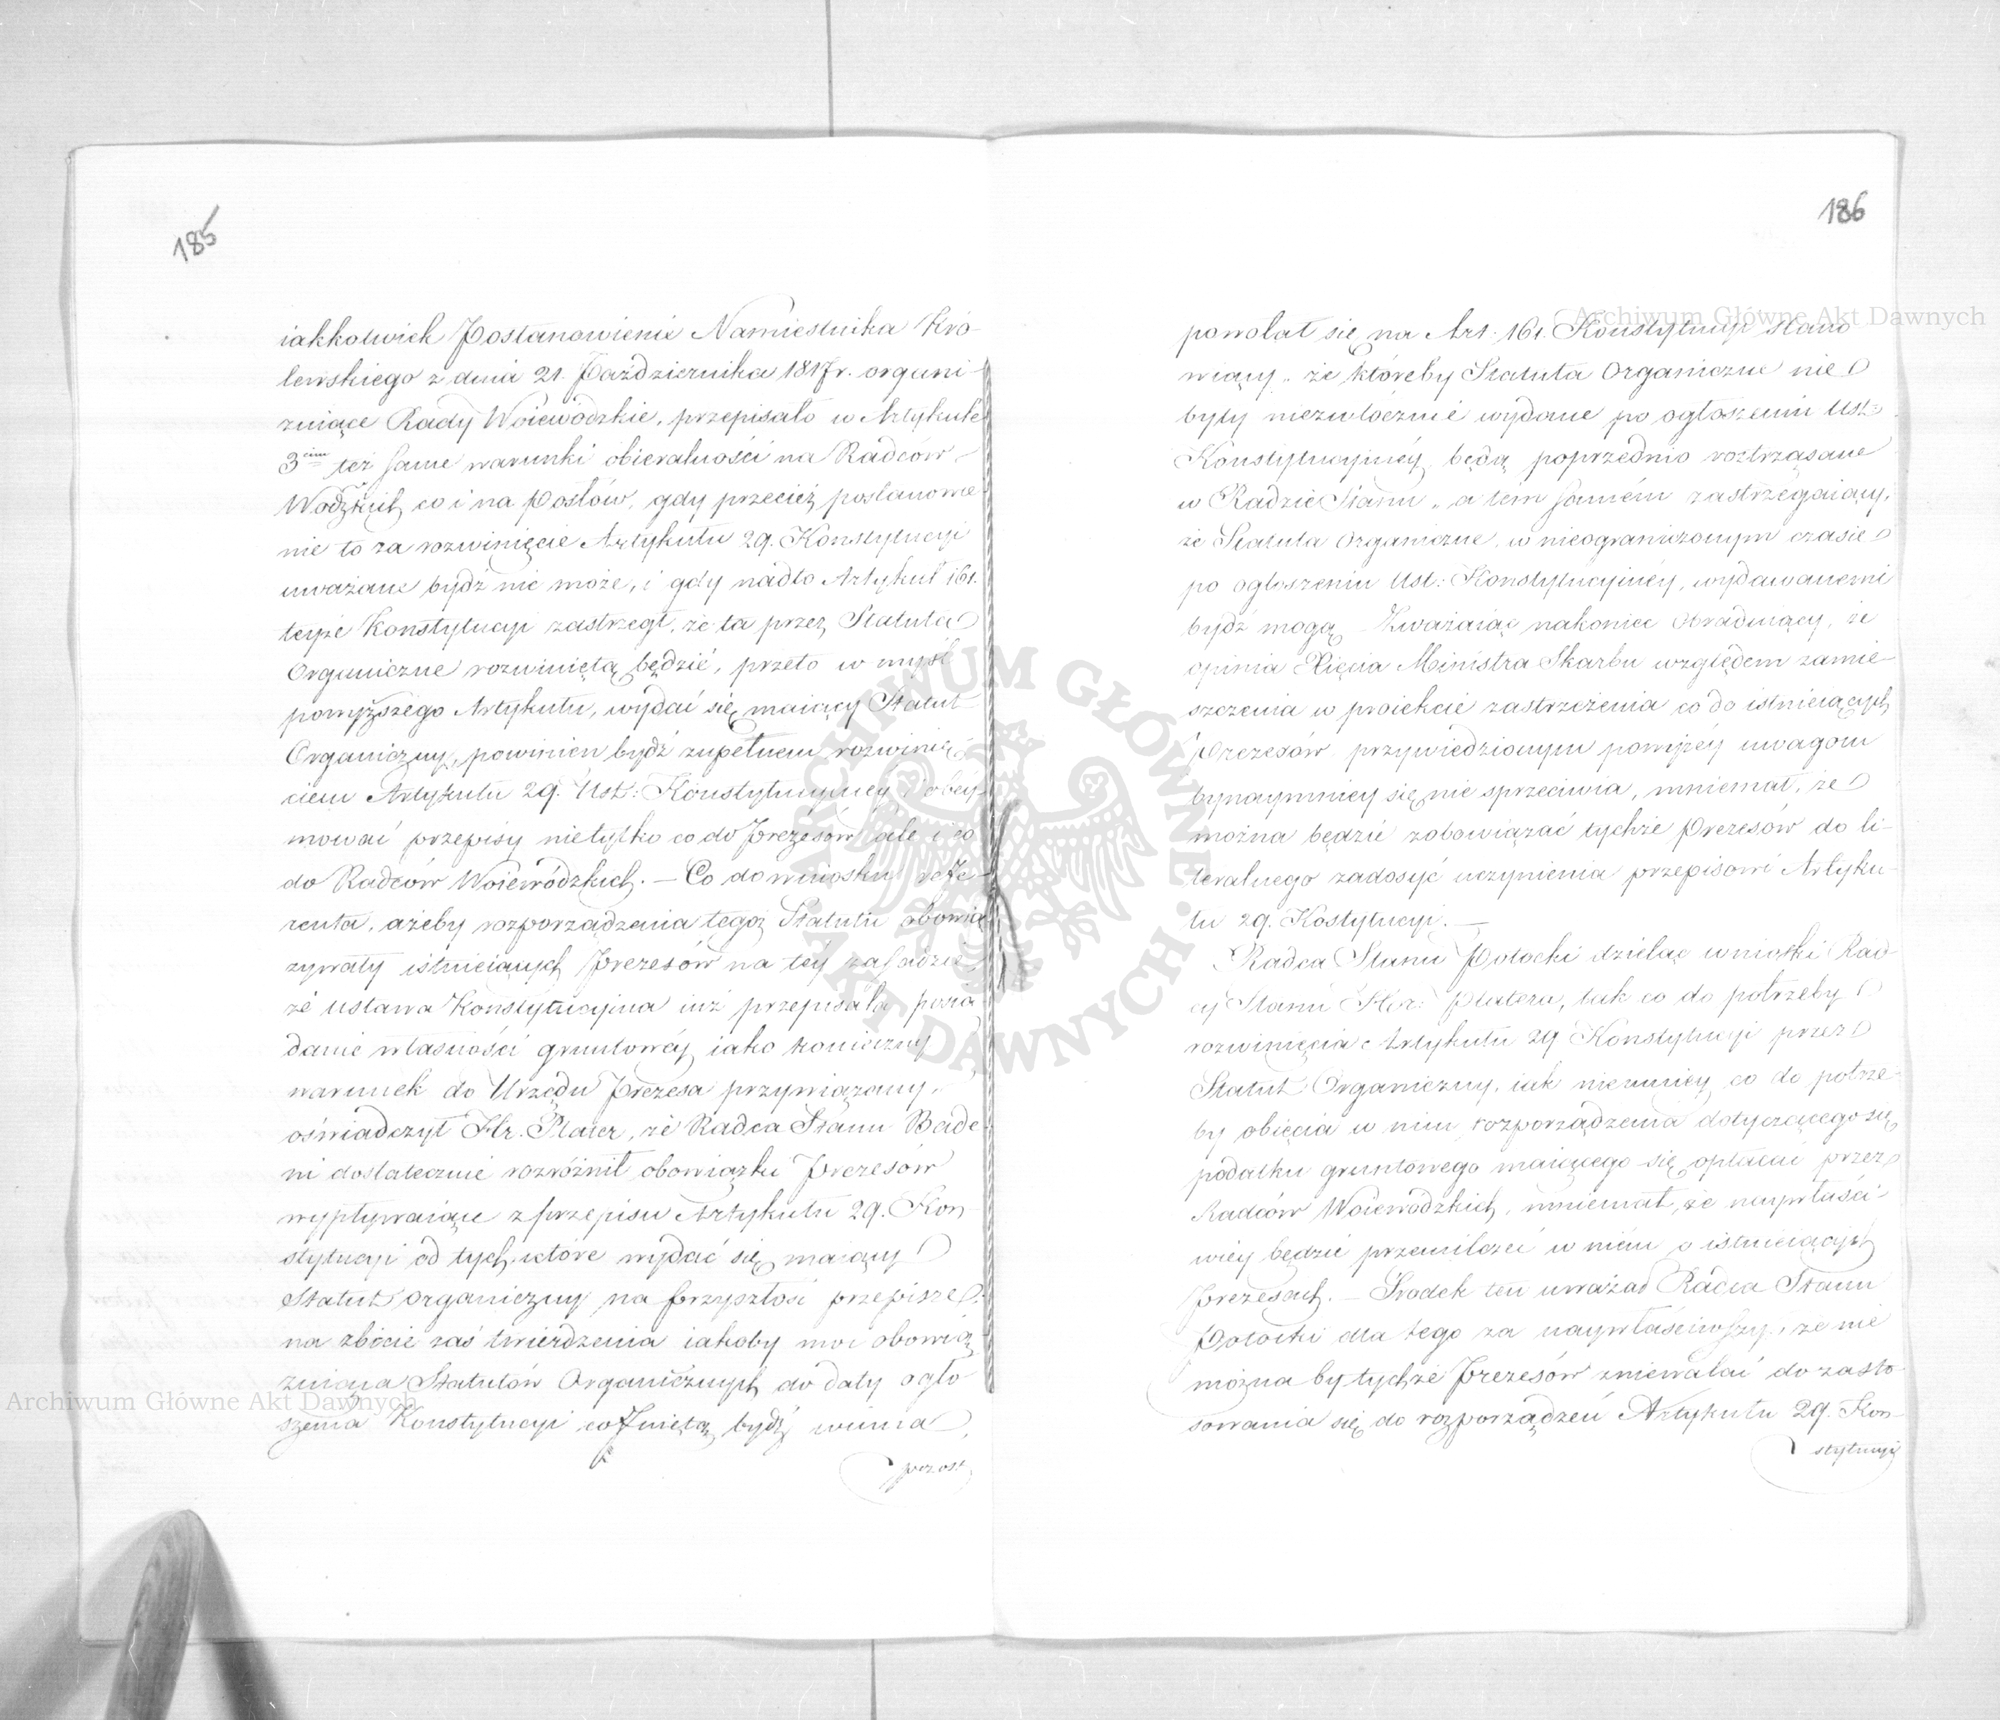 185
iakkolwiek Postanowienie Namiestnika Kró-
lewskiego z dnia 21. Października 1817r. organi-
zuiące Rady Woiewódzkie, przepisało w Artykule
3cim też same warunki obieralności na Radców
Wodzkich co i na Posłów, gdy przecież postanowie-
nie to za rozwinięcie Artykułu 29. Konstytucyi
uważane bydź nie może, i gdy nadto Artykuł 161.
teyże Konstytucyi zastrzegł, że ta przez Statuta
Organiczne rozwiniętą będzie, przeto w myśl
powyższego Artykułu, wydać się maiący Statut
Organiczny, powinien bydź zupełnem rozwinię-
ciem Artykułu 29. Ust: Konstytucyiney, i obey-
mować przepisy nietylko co do Prezesów ale i co
do Radców Woiewódzkich. — Co do wniosku Refe-
renta, ażeby rozporządzenia tegoż Statutu obowią
zywały istnieiących Prezesów na tey zasadzie,
że Ustawa Konstytucyjna iuż przepisała posia
danie własności gruntowéy iako konieczny
warunek do Urzędu Prezesa przywiązany,
oświadczył Hr. Plater, że Radca Stanu Bade-
ni dostatecznie rozróżnił obowiązki Prezesów
wypływaiące z przepisu Artykułu 29. Kon-
stytucyi od tych, które wydać się maiący
Statut organiczny na przyszłość przepisze;
na zbicie zaś twierdzenia iakoby moc obowią
zuiąca Statutów Organicznych do daty ogło-
szenia Konstytucyi cofniętą bydź winna,
powoł
186
powołał się na Art. 161. Konstytucyi stano
wiący „że któreby Statuta Organiczne nie
były niezwłócznie wydane po ogłoszeniu Ust:
Konstytucyinéy, będą poprzednio roztrząsane
w Radzie Stanu „ a tém samém zastrzegaiący,
że Statuta Organiczne, w nieograniczonym czasie
po ogłoszeniu Ust: Konstytucyinéy, wydawanemi
bydź mogą. Zważaiąc nakoniec Obraduiący, że
opinia Xięcia Ministra Skarbu względem zamie-
szczenia w proiekcie zastrzeżenia co do istnieiących
Prezesów przywiedzionym powyżéy uwagom
bynaymniey się nie sprzeciwia, mniemał, że
można będzie zobowiązać tychże Prezesów do li-
teralnego zadosyć uczynienia przepisowi Artyku-
łu 29. Kostytucyi. —
Radca Stanu Potocki dzieląc wnioski Rad-
cy Stanu Hr: Platera, tak co do potrzeby
rozwinięcia Artykułu 29 Konstytucyi przez
Statut Organiczny, iak niemniey co do potrze-
by obięcia w nim rozporządzenia dotyczącego się
podatku gruntowego maiącego się opłacać przez
Radców Woiewódzkich, mniemał, że naywłaści-
wiey będzie przemilczeć w niém o istnieiących
Prezesach. — Srodek ten uważał Radca Stanu
Potocki dla tego za naywłaściwszy, że nie
możnaby tychże Prezesów zniewalać do zasto-
sowania się do rozporządzeń Artykułu 29. Kon-
stytucyi
Archiwum Główne Akt Dawnych
Archiwum Główne Akt Dawnych
ARCHIWUM GŁÓWNE
AKT DAWNYCH